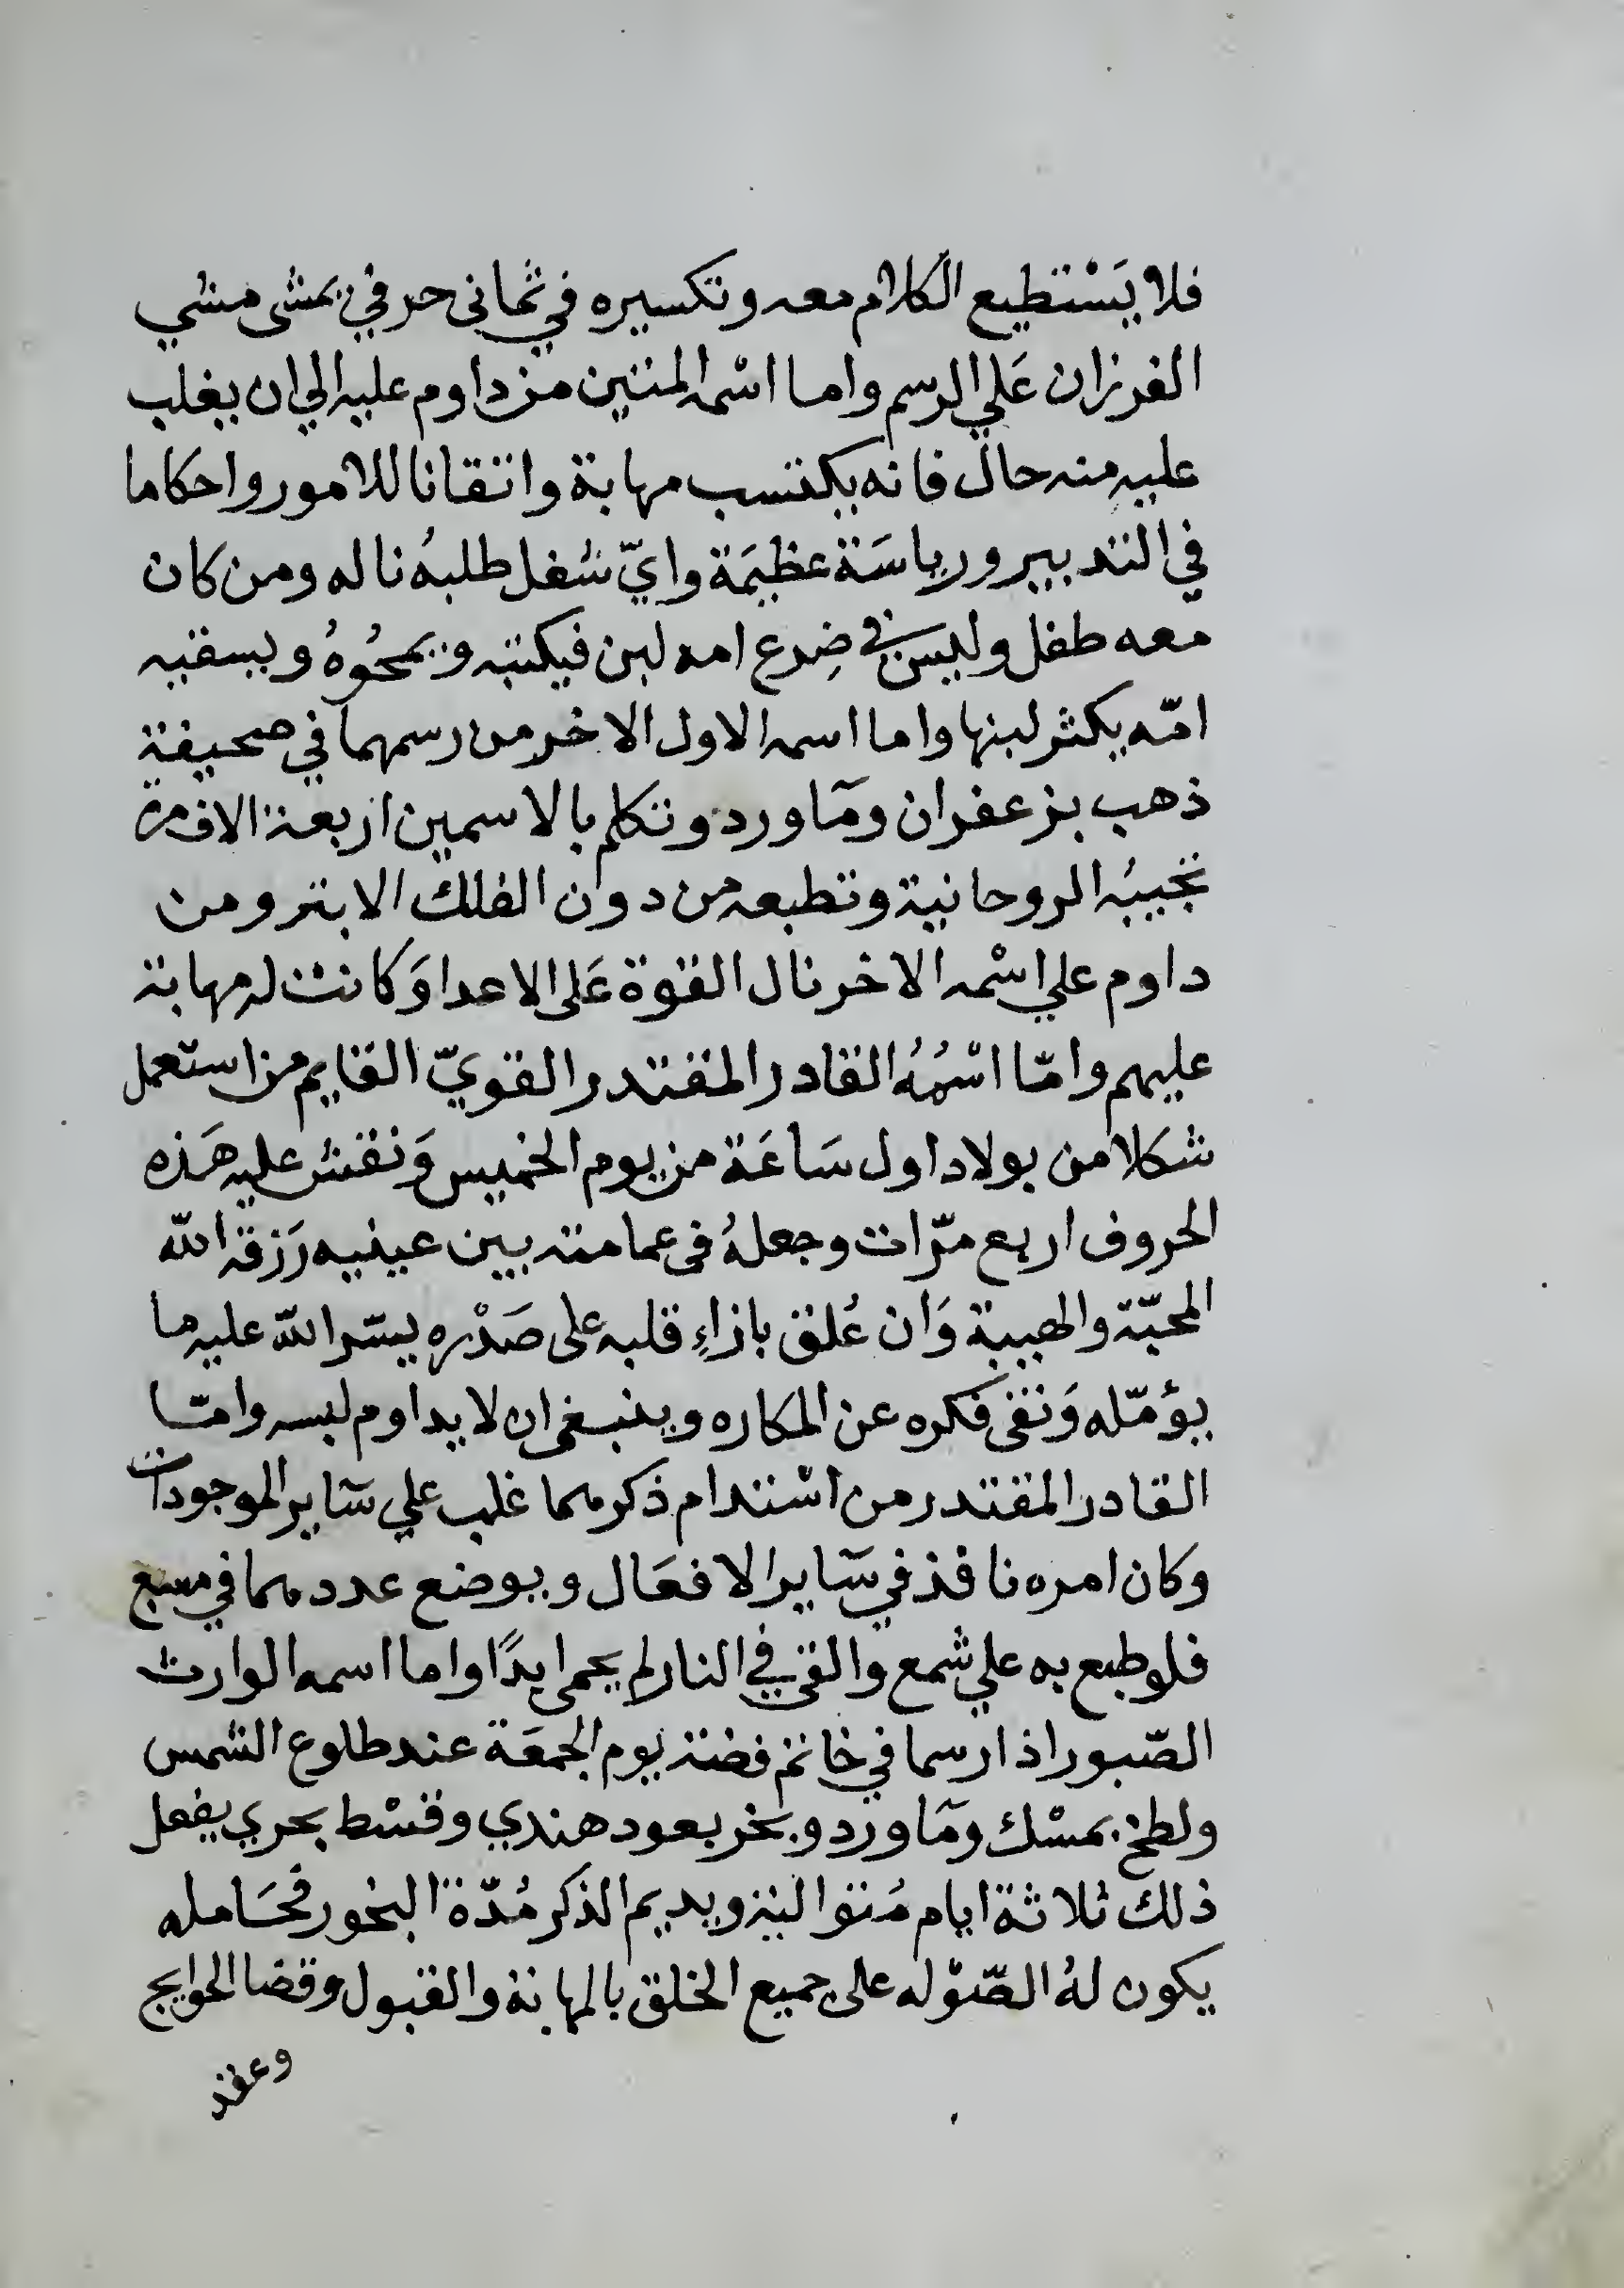 فلا يَسْتطيع الكلام معه وتكسيره في ثماني حرفي يمشى مشي
الفرزان عَلي الرسم واما اسْمه المتين من داوم عليه الي ان يغلب
عليه منه حال فانه يكتسب مهابة واتقانا للامور واحكاما
في التدبير ورياسَة عظيمَة وايّ شغل طلبهُ ناله ومن كان
معه طفل وليس في ضِرع امه لبن فيكتبه ويمحُوهُ ويسقيه
امّه يكثر لبنها واما اسمه الاول الاخر من رسمهما في صحيفة
ذهب بزعفران ومآ ورد وتكلم بالاسمين اربعة الاف مرة
تجيبُه الروحانية وتطبعه من دون الفلك الابتر ومن
داوم علي اسْمه الاخر نال القوة عَلى الاعدا وَكانت له مهابة
عليهم وامّا اسْمُهُ القادر المقتدر القويّ القايم من استعمل
شكلا من بولاد اول سَاعَة من يوم الخميس وَنقش عليه هَذه
الحروف اربع مرّات وجعلهُ فى عمامته بين عينيه رَزقه الله
المحبّة والهيبة وَان عُلق بازاءِ قلبه على صَدْره يسّر الله عليه ما
يؤمّله وَنفى فكره عن المكاره وينبغى ان لا يداوم لبسه وامّا
القادر المقتدر من اسْتدام ذكرهما غلب علي سَآير الموجودات
وكان امره نافذ في سَآير الافعَال ويوضع عددهما في مسبع
فلو طبع به علي شمع والقي في النار لم يحمى ابدًا واما اسمه الوارث
الصّبور اذا رسما في خاتم فضة يوم الجمعَة عند طلوع الشمس
ولطخ بمسْك ومآ ورد وبخر بعود هندي وقسْط بحري يفعل
ذلك ثلاثة ايام مُتوالية ويديم الذكر مُدّة البخور فحَامله
يكون لهُ الصّوْله على جميع الخلق بالمهابة والقبول وقضا الحوايج
وعقد